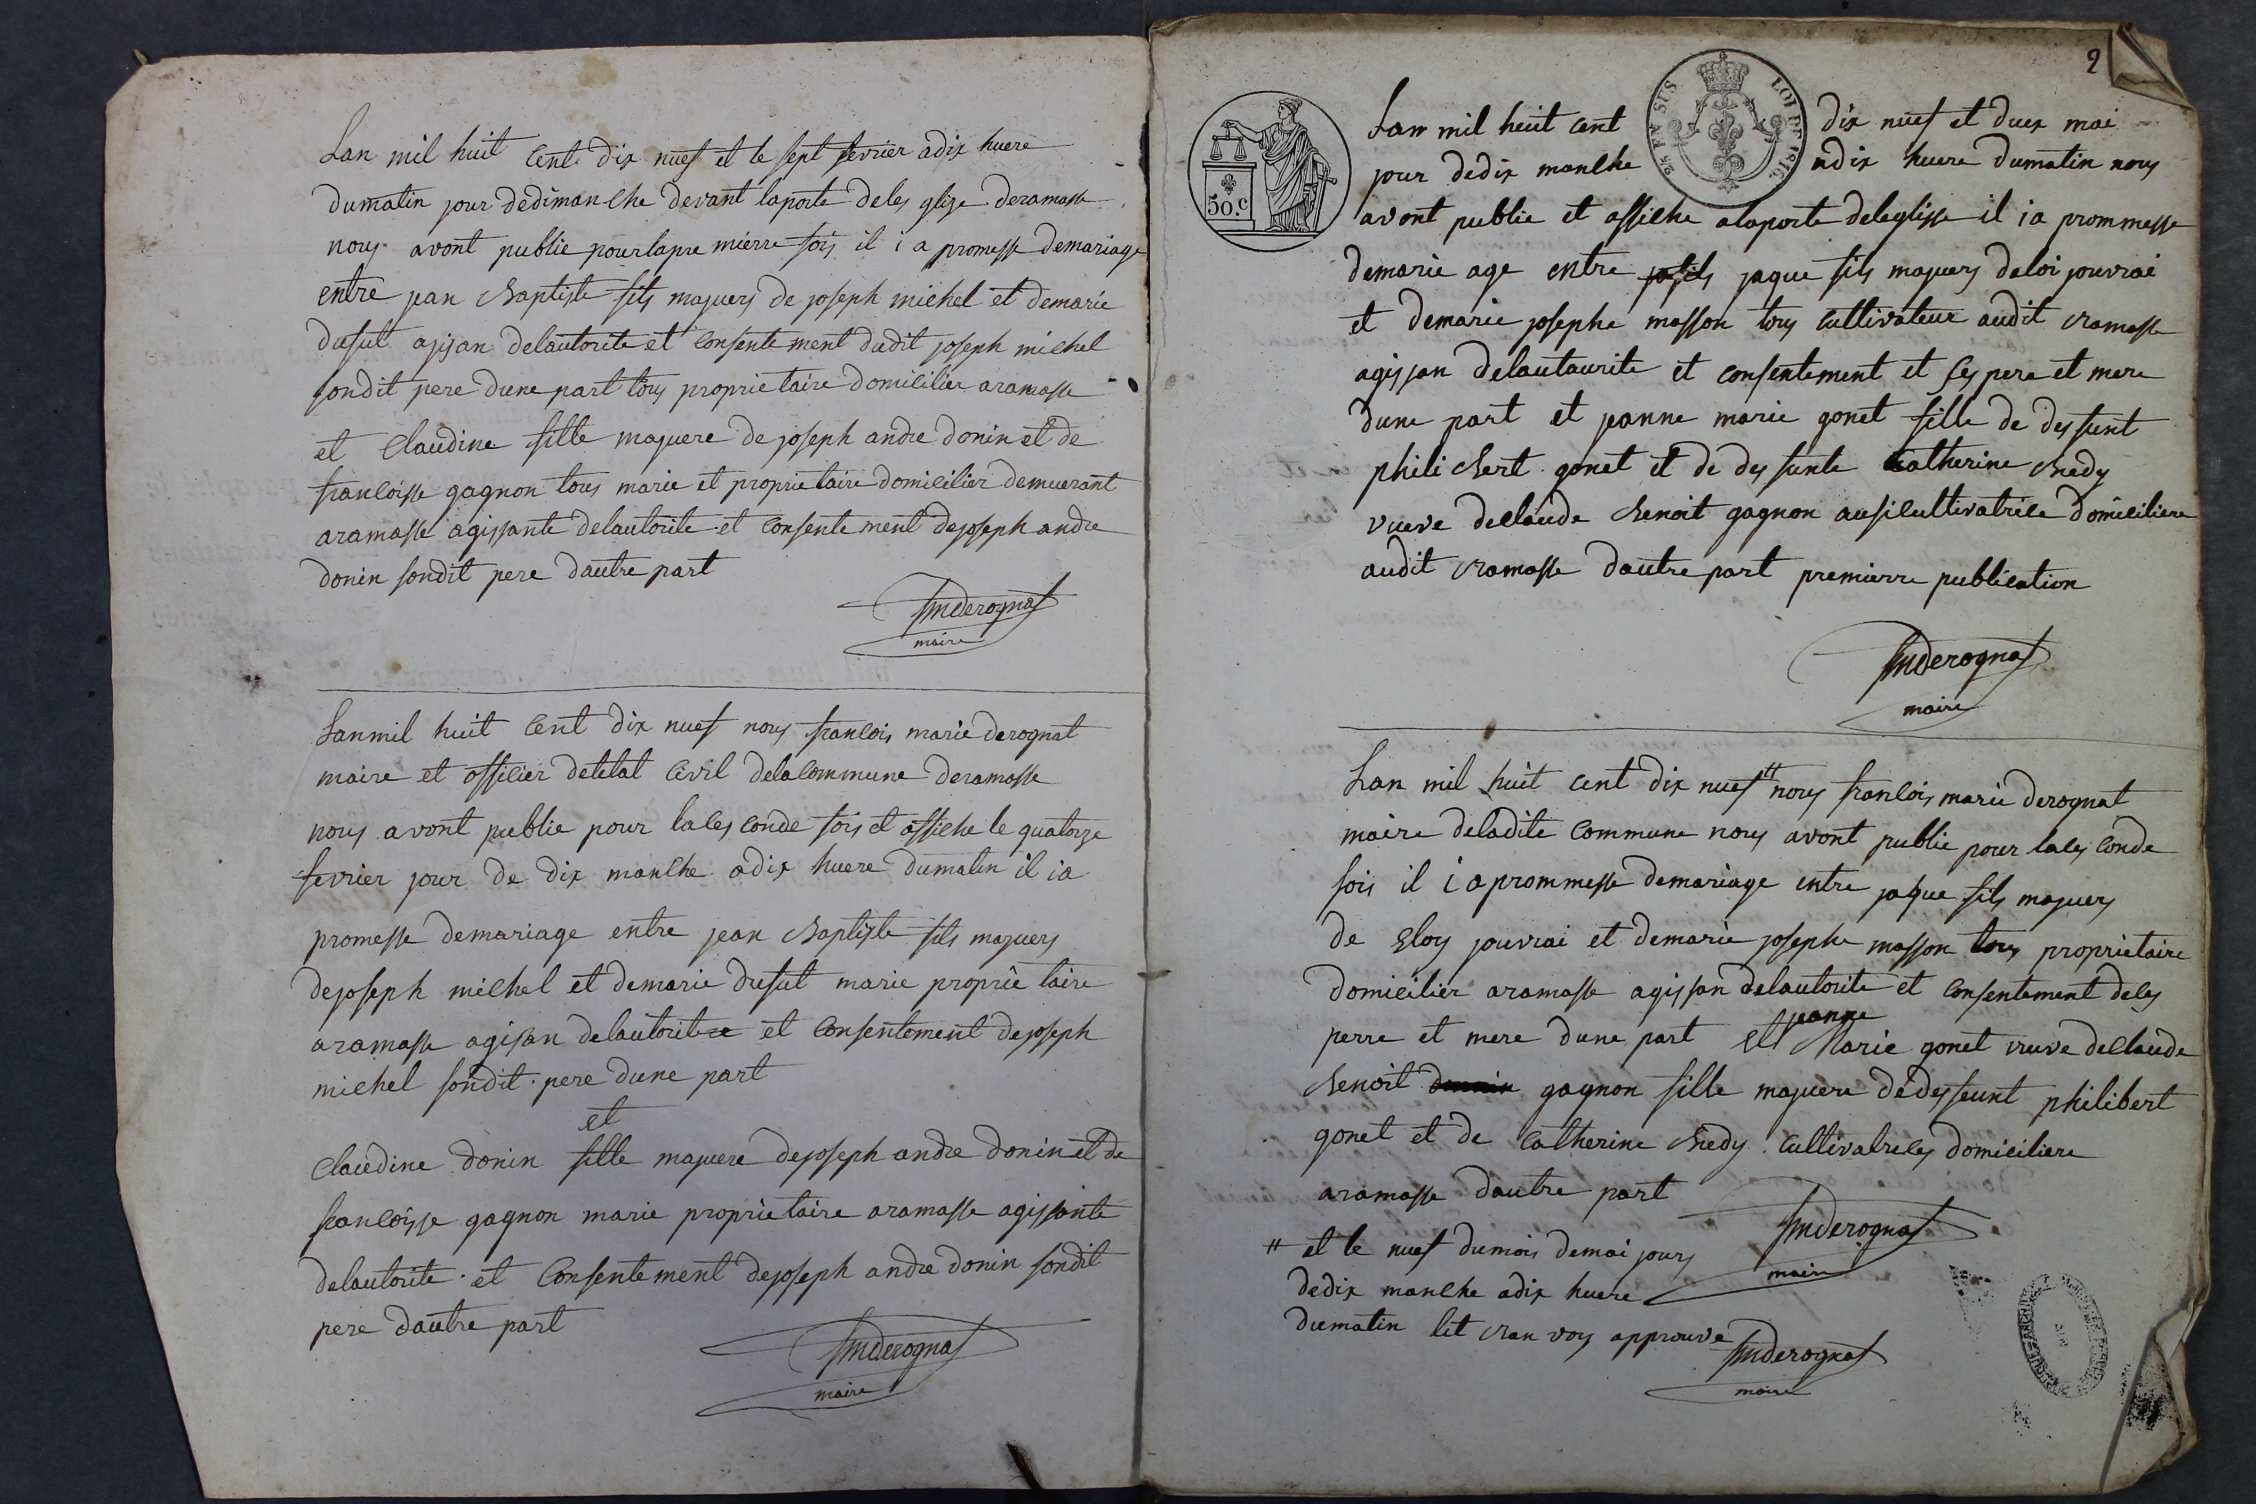 Lan mil huit Cent dix nuef et le sept fevrier adix huere
dumatin jour dedimanche devant laporte deles glize deramasse
nous avont publie pourlapre mierre fois il i a promesse demariage
entre jean Baptiste fils majuers de joseph michel et demarie
dufut agisan delautorite et Consente ment dudit joseph michel
sondit pere dune part tous proprietaire domicilier aramasse
et Claudine fille majuere de joseph andre donin et de
francoisse gagnon tous marie et proprietaire domicilier demuerant
aramasse agissante delautorite et Consente ment dejoseph andre
donin sondit pere dautre part
fmderognat
maire
Lanmil huit Cent dix nuef nous francois marie derognat
maire et officier detetat Civil delaCommune deramasse
nous avont publie pour lales conde fois et affiche le quatorze
fevrier jour de dix manche adix huere dumatin il ia
promesse demariage entre jean Baptiste fils majuers
dejoseph michel et demarie dufut marie proprie taire
aramasse agisan delautorite et Consentement dejoseph
michel sondit pere dune part
et
Claudine donin fille majuere dejoseph andre donin et de
francoisse gagnon marie proprietaire aramasse agissante
delautorite et Consentement dejoseph andre donin sondit
pere dautre part
fmderognat
maire
2
50.c
28 EN SUS
LOI DE 1816
Lan mil huit cent dix nuef et duex mai
jour dedix manche adix huere dumatin nous
avont publie et affiche alaporte deleglisse il ia prommesse
demarie age entre jaque fils majuers deloi jouvrai
et demarie josephe masson tous Cultivateur audit ramasse
agissan delautaurite et consentement et ses pere et mere
dune part et jeanne marie gonet fille de des funt
phili bert gonet et de des funte Catherine Bredy
vueve declaude Benoit gagnon ausicultivatrice domiciliere
audit ramasse dautre part premierre publication
fmderognat
maire
Lan mil huit cent dix nuef # nous francois marie derognat
maire deladite Commune nous avont publie pour lales conde
fois il i a prommesse demariage entre jaque fils majuers
de Eloy jouvrai et demarie josephe masson tous proprietaire
domicilier aramasse agissan delautorite et Consentement deles
perre et mere dune part et jeanne Marie gonet vueve declaude
Benoit gagnon fille majuere de desfeunt philibert
gonet et de Catherine Bredy Cultivatrices domiciliere
aramasse dautre part
fmderognat
maire
# et le nuef dumois demai jours
dedix manche adix huere
dumatin lit ran voy approuve
fmderognat
maire